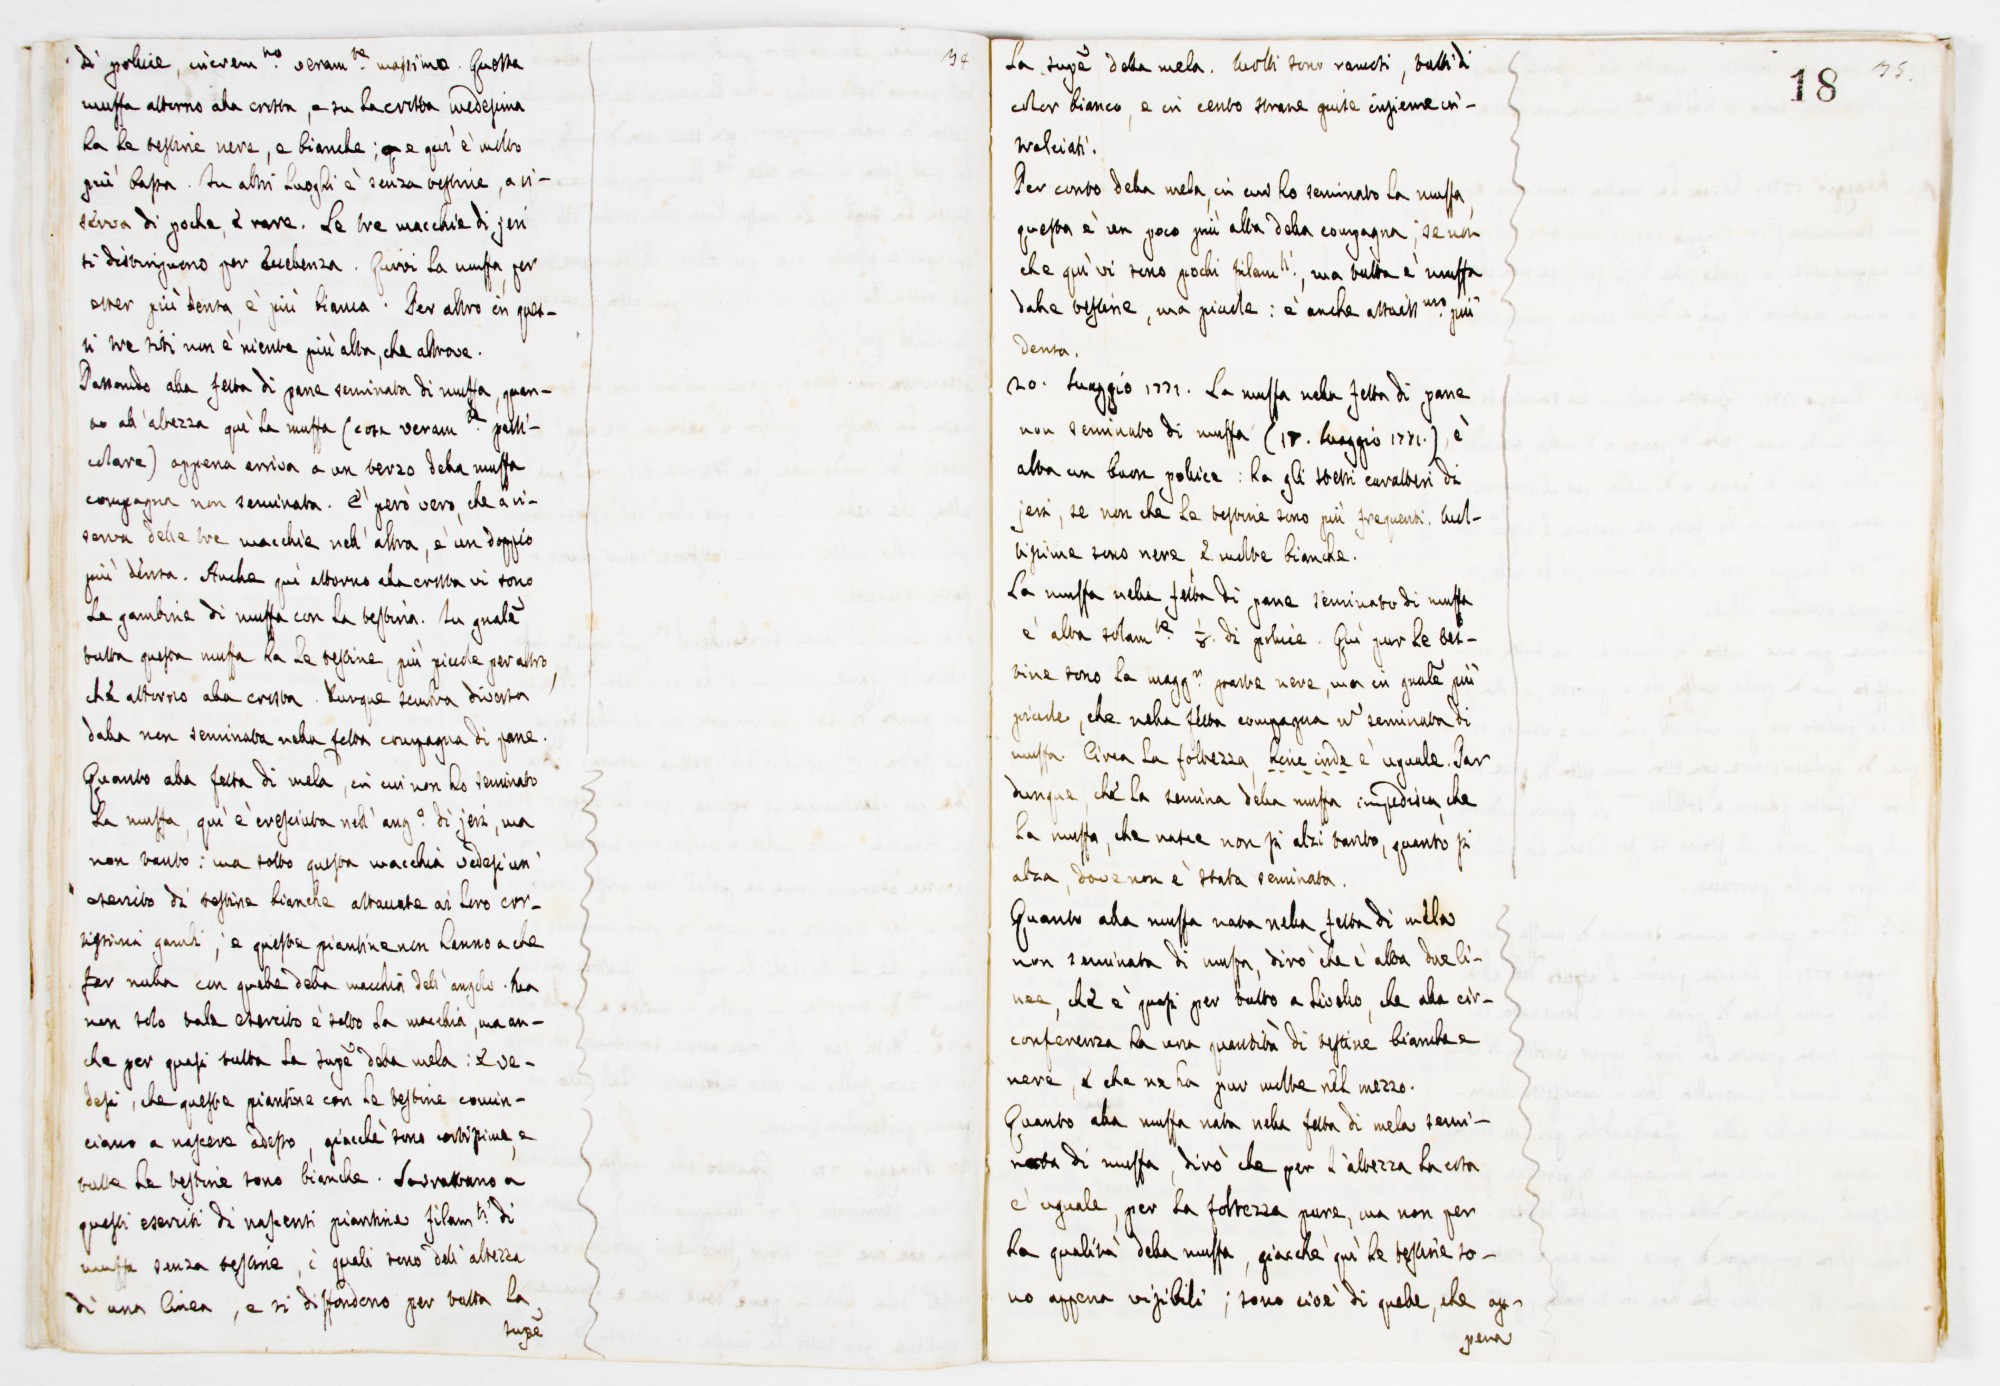 34
di police, increm.to veram.te massimo. Questa
muffa attorno alla crosta, e su la crosta medesima
ha le testine nere, e bianche; e qui è molto
più bassa. In altri luoghi è senza testine, a ri-
serva di poche, e rare. Le tre macchie di jeri
si distinguono per eccellenza. Quivi la muffa per
esser più densa, è più bianca. Per altro in ques-
ti tre siti non è niente più alta, che altrove.
Passando alla fetta di pane seminata di muffa, quan-
to all'altezza quì la muffa (cosa veram.te parti-
colare) appena arriva a un terzo della muffa
compagna non seminata. E' però vero, che a ri-
serva delle tre macchie nell'altra, è un doppio
più densa. Anche quì attorno alla crosta vi sono
le gambine di muffa con la testina. In gnale
tutta questa muffa ha le testine, più piccole per altro,
che attorno alla crosta. Dunque sembra diversa
dalla non seminata nella fetta compagna di pane.
Quanto alla fetta di mela, in cui non ho seminato
la muffa, quì è cresciuta nell'ang.o di jeri, ma
non tanto: ma sotto questa macchia vedesi un'
esercito di testine bianche attaccate ai loro cor-
tissimi gambi, e queste piantine non hanno a che
far nulla con quelle della macchia dell'angolo. Ma
non solo tale esercito è sotto la macchia, ma an-
che per quasi tutta la supe della mela: e ve-
desi, che queste piantine con le testine comin-
ciano a nascere adesso, giacchè sono cortissime, e
tutte le testine sono bianche. Sovrastano a
questi eserciti di nascenti piantine filam.ti di
muffa senza testine, i quali sono dell'altezza
di una linea, e si diffondono per tutta la
supe
18 35.
La supe della mela. Molti sono ramosi, tutti di
color bianco, e in cento strane guise insieme in-
tralciati.
Per conto della mela, in cui ho seminato la muffa,
questa è un poco più alta della compagna; se non
che qui vi sono pochi filam.ti, ma tutta è muffa
dalle testine, ma piccole: è anche assaiss.mo più
densa.
20. Maggio 1771. La muffa nella fetta di pane
non seminato di muffa (18. Maggio 1771.), è
alta un buon police: ha gli stessi caratteri di
jeri, se non che le testine sono più frequenti. Mol-
tissime sono nere, e molte bianche.
La muffa nella fetta di pane seminato di muffa
è alta solam.te 1/2. di police. Quì pur le tes-
tine sono la magg.r parte nere, ma in gnale più
piccole, che nella fetta compagna n seminata di
muffa. Circa la foltezza, hinc inde è uguale. Par
dunque, che la semina della muffa impedisca, che
la muffa, che nasce non si alzi tanto, quanto si
alza, dove non è stata seminata.
Quanto alla muffa nata nella fetta di mela
non seminata di muffa, dirò che è alta due li-
nee, che è quasi per tutto a livello, che alla cir-
conferenza ha una quantità di testine bianche e
nere, e che ne ha pur molte nel mezzo.
Quanto alla muffa nata nella fetta di mela semi-
nata di muffa, dirò che per l'altezza la cosa
è uguale, per la foltezza pure, ma non per
la qualità della muffa, giacchè quì le testine so-
no appena visibili; sono cioè di quelle, che ap-
pena